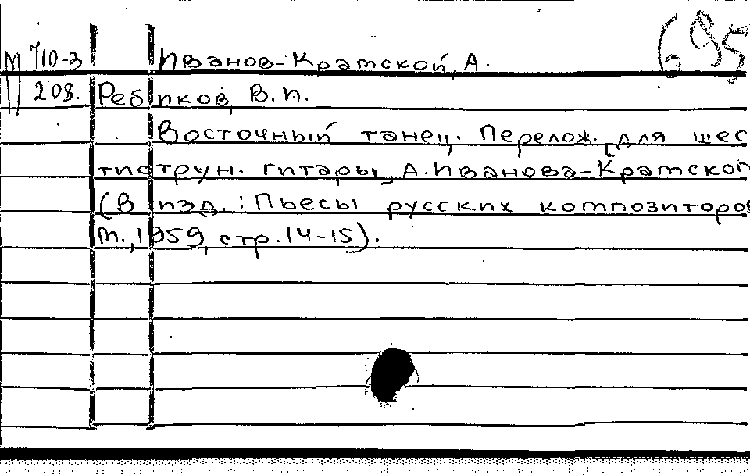 М 710-3 Иванов-Крамской, А. 695
208. Ребиков, В.И.
Восточный танец. Перелож. [для шес
тиструн. гитары] А. Иванова-Крамской
(В изд.: Пьесы русских композиторов
М., 1959, стр. 14-15).